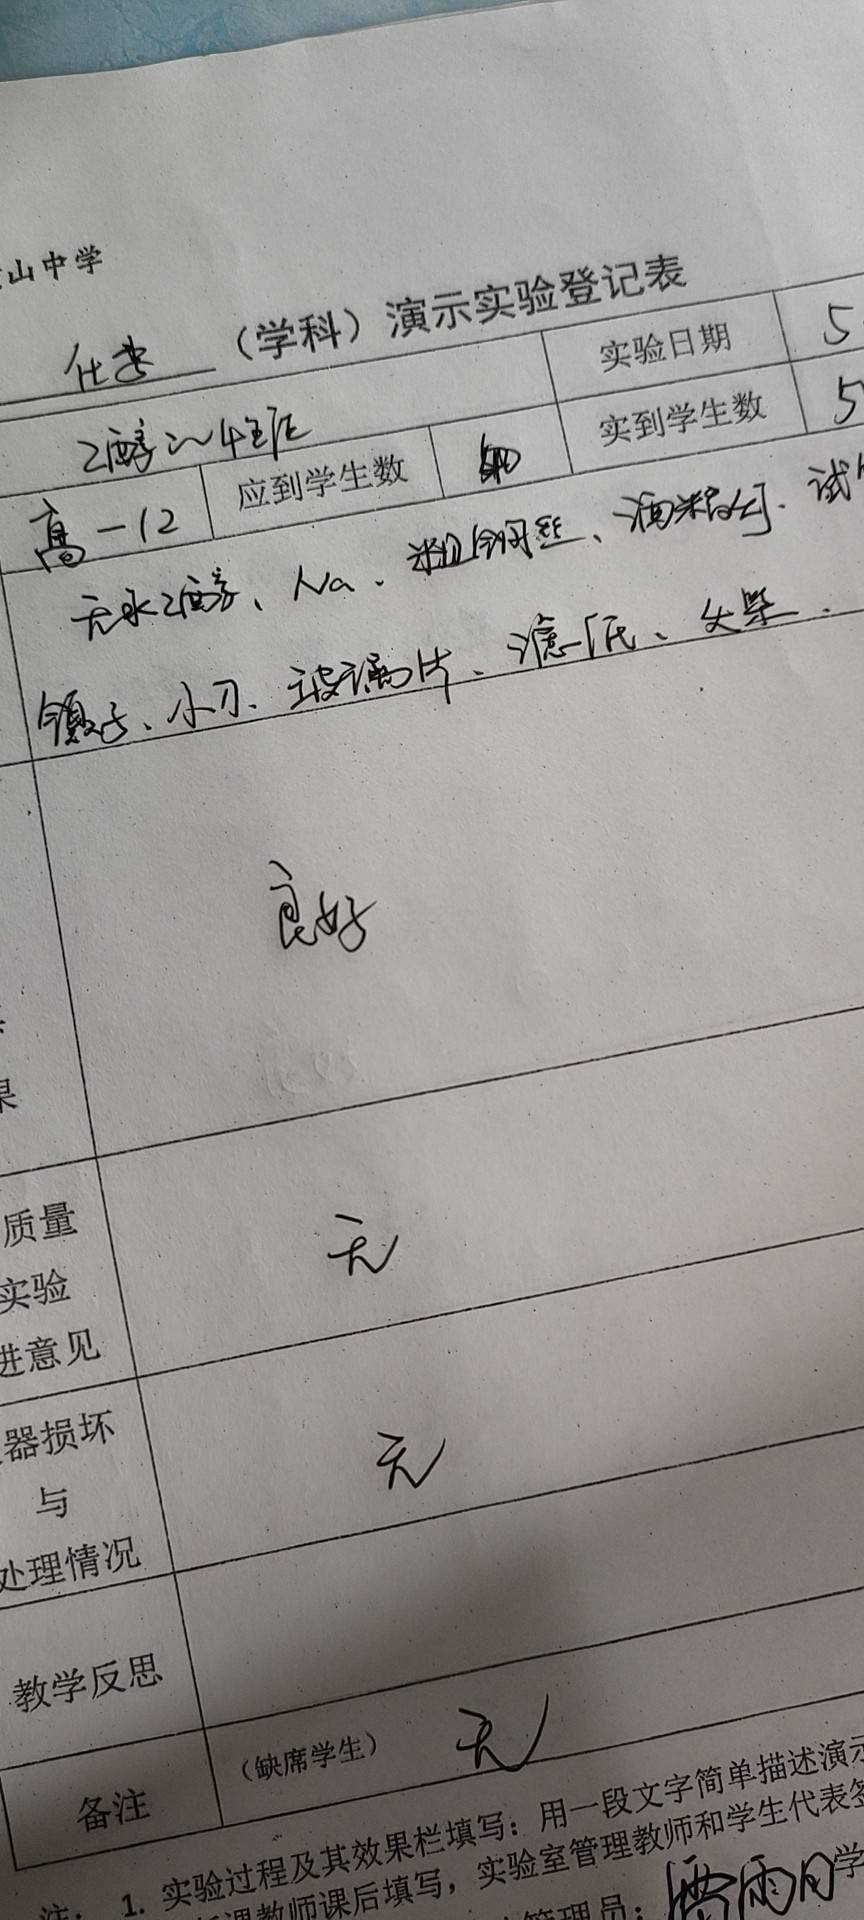 山中学
化学（学科）演示实验登记表
实验日期 5
乙醇的性质
实到学生数 5
高一12 应到学生数
无水乙醇、Na、粗铜丝、酒精灯、试
镊子、小刀、玻璃片、滤纸、火柴、
良好
果
质量
实验
进意见
无
器损坏
与
处理情况
无
教学反思
备注 （缺席学生） 无
注： 1. 实验过程及其效果栏填写：用一段文字简单描述演示
课教师课后填写，实验室管理教师和学生代表签
管理员： 学